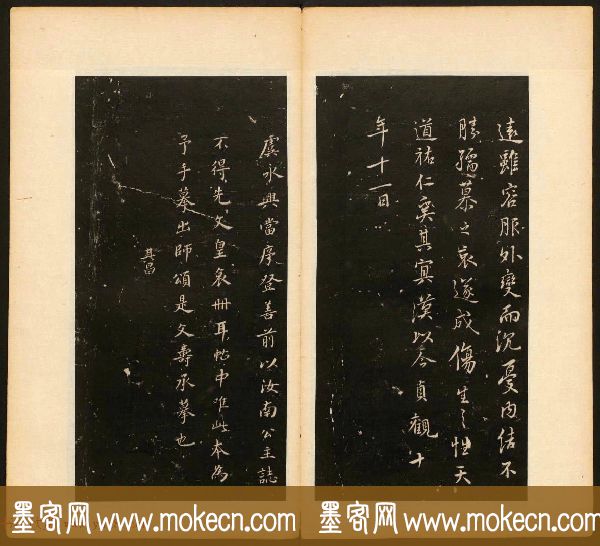 遠雖容服外變而沉憂內結不
勝孺慕之哀遂成傷生之性天
道祐仁奚其冥漠以今貞觀十
年十一月
虞永興當序登善前以汝南公主誌
不得先文皇哀冊耳帖中唯此本為
予手摹出師頌是文壽承摹也
其昌
墨客网 www.mokecn.com 墨客网 www.mokecn.com